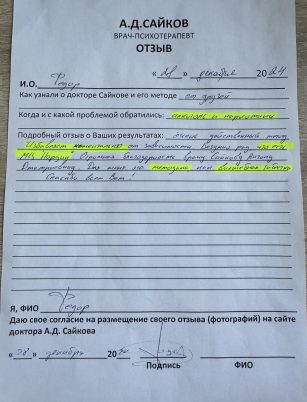 А.Д.САЙКОВ
ВРАЧ-ПСИХОТЕРАПЕВТ
ОТЗЫВ
« 28 » декабря 2024
И.О. Федор
Как узнали о докторе Сайкове и его методе от друзей
Когда и с какой проблемой обратились: алкоголь и наркотики
Подробный отзыв о Ваших результатах: очень действенный метод
Избавляет моментально от зависимости
Огромная благодарность врачу Сайкову
Дмитриевичу. Для меня его методика или волшебная таблетка
Спасибо Вам!
Я, ФИО Федор
Даю свое согласие на размещение своего отзыва (фотографий) на сайте
доктора А.Д. Сайкова
« 28 » декабрь 20
Подпись ФИО